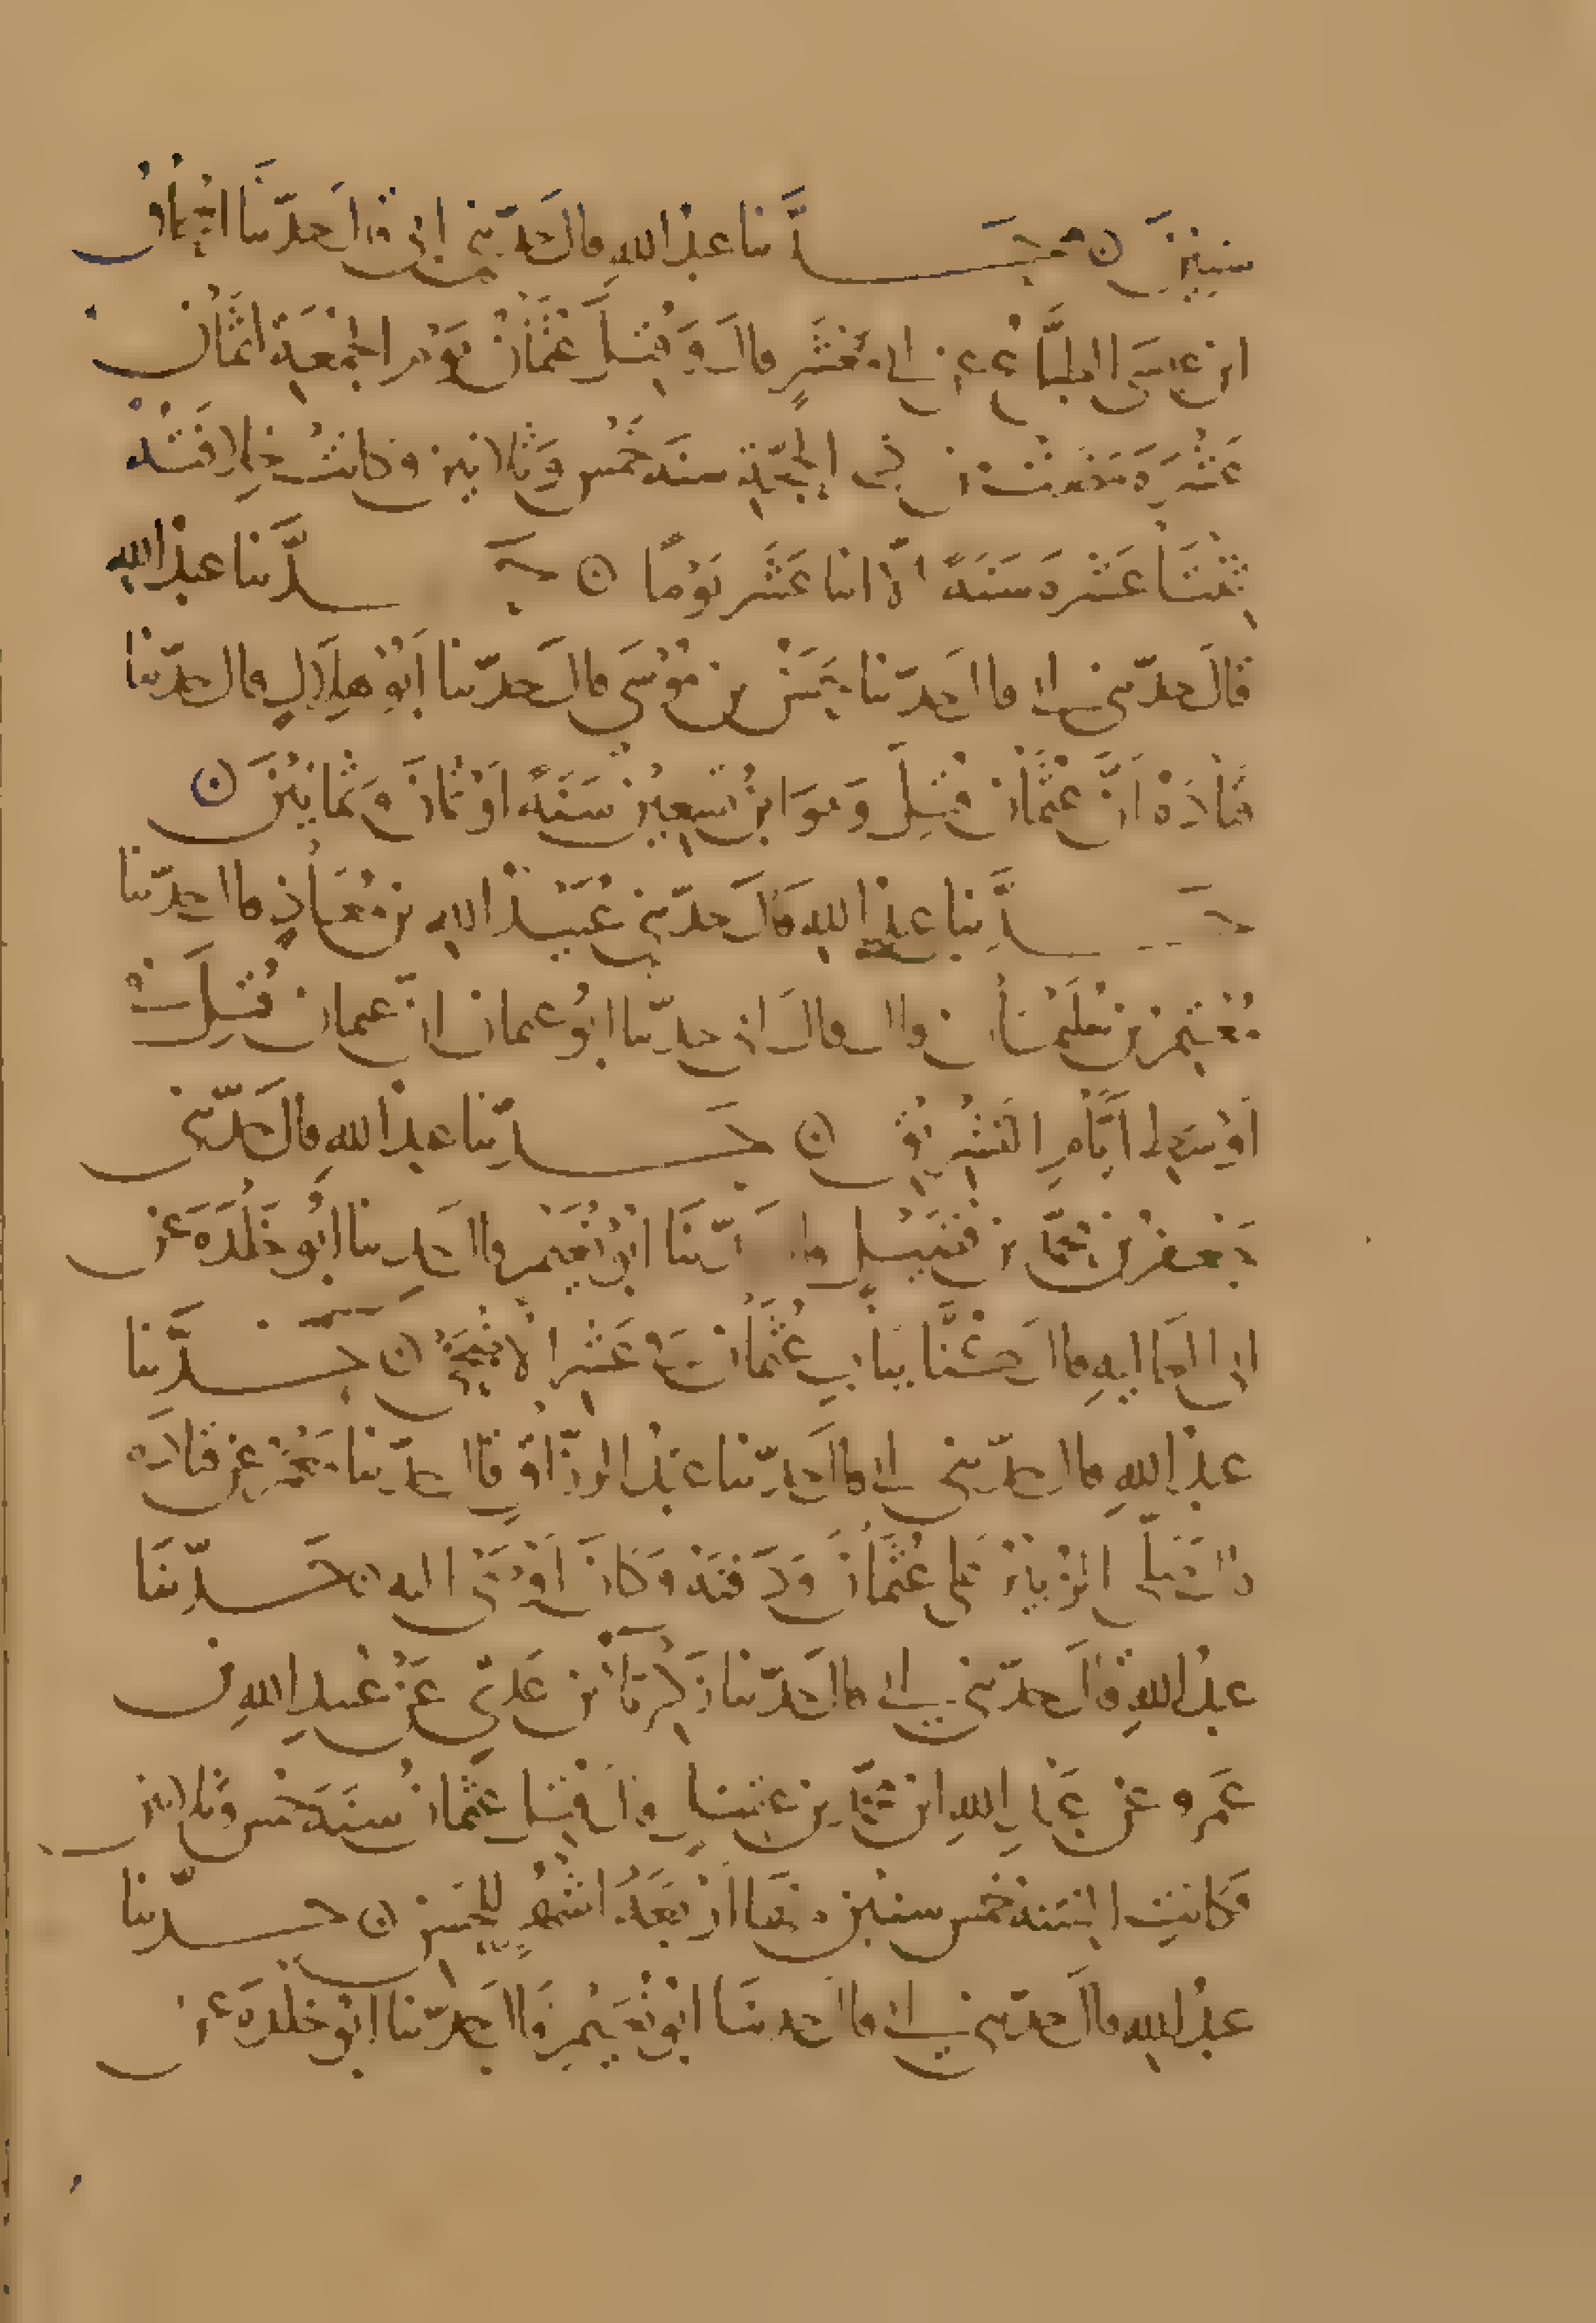 سنين ۞ حدثنا عبد الله قال حدثني ابي قال حدثنا اسحاق
ابن عيسى الطباع عن ابي معشر قال وقتل عثمان يوم الجمعة لثمان
عشرة مضت من ذي الحجة سنة خمس وثلاثين وكانت خلافته
ثنتا عشرة سنة الا اثنا عشر يوما ۞ حدثنا عبد الله
قال حدثني ابي قال حدثنا حسن بن موسى قال حدثنا ابو هلال قال حدثنا
قتادة ان عثمان قتل وهو ابن تسعين سنة او ثمان وثمانين ۞
حدثنا عبد الله قال حدثني عبيد الله بن معاذ قال حدثنا
معتمر بن سليمان قال قال ابي حدثنا ابو عثمان ان عثمان قتل في
اوسط ايام التشريق ۞ حدثنا عبد الله قال حدثني
جعفر بن محمد بن فضيل قال حدثنا ابو نعيم قال حدثنا ابو خلدة عن
ابي العالية قال كنا بباب عثمان في عشر الاضحى ۞ حدثنا
عبد الله قال حدثني ابي قال حدثنا عبد الرزاق قال حدثنا معمر عن قتادة
قال صلى الزبير على عثمان ودفنه وكان اوصى اليه ۞ حدثنا
عبد الله قال حدثني ابي قال حدثنا زكريا بن عدي عن عبيد الله بن
عمرو عن عبد الله ابن محمد بن عقيل قال قتل عثمان سنة خمس وثلاثين
وكانت الفتنة خمس سنين منها اربعة اشهر للحسن ۞ حدثنا
عبد الله قال حدثني ابي قال حدثنا ابو نعيم قال حدثنا ابو خلدة عن